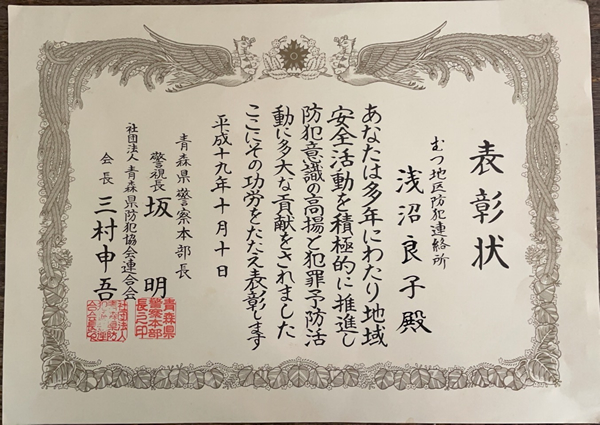 表彰状
むつ地区防犯連絡所
浅沼良子殿
あなたは多年にわたり地域
安全活動を積極的に推進し
防犯意識の高揚と犯罪予防活
動に多大な貢献をされました
ここにその功労をたたえ表彰します
平成十九年十月十日
青森県警察本部長
警視長 坂明
社団法人青森県防犯協会連合会
会長 三村申吾
青森県
警察本部
長之印